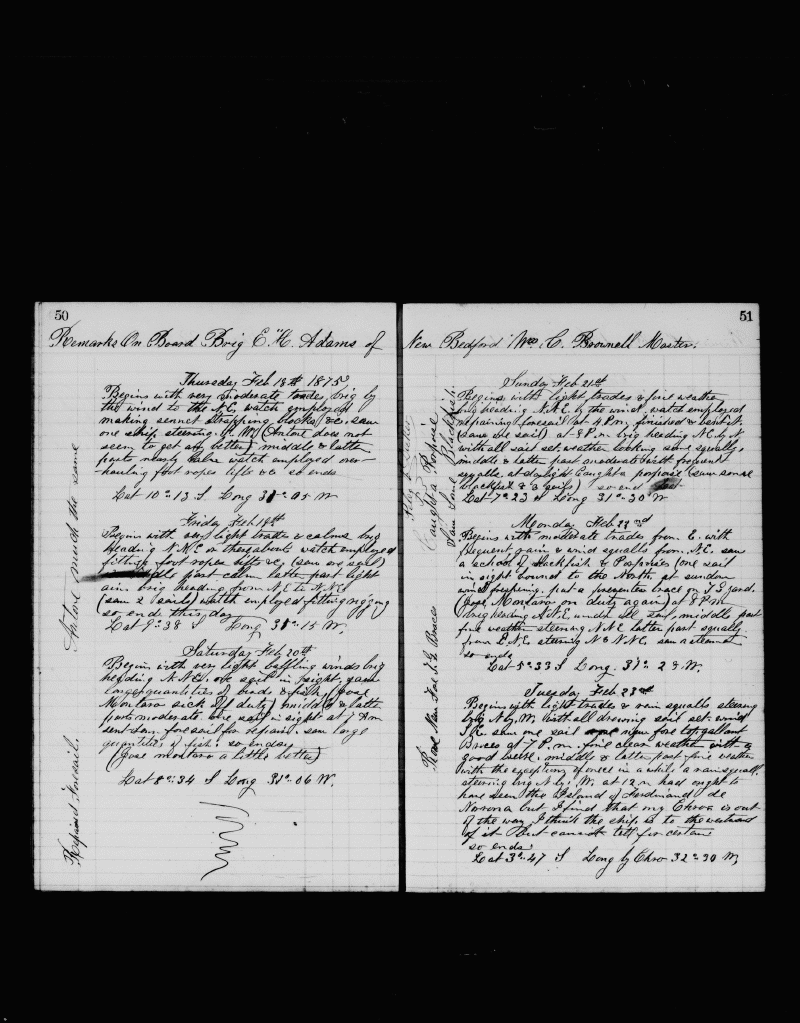 50
Remarks On Board Brig E. H. Adams of
Thursday Feb 18th 1875
Begins with very moderate trades, brig by
the wind to the N.E. watch employed
making sennet strapping blocks &c. saw
one ship steering S. W. (Antone does not
seem to get any better) middle & latter
parts nearly watch employed over-
hauling foot ropes lifts &c so ends
Lat 10°-13 S Long 05 W
Antone much the same
Friday Feb 19th
Begins with very light trades & calms brig
heading N.N.E or thereabouts watch employed
fitting foot ropes lifts &c, (saw one sail)
middle part calm latter part light
airs brig heading from N.E to N.N.E
(saw 2 sails) watch employed fitting rigging
so ends this day
Lat 9°-38 S Long 15 W.
Saturday Feb 20th
Begins with very light baffling winds brig
heading N.N.E. one sail in sight, saw
large quantities of birds & fish, (Jose
Montaro sick off duty) middle & latter
parts moderate one sail in sight at 7 AM
sent down foresail for repairs. saw large
quantities of fish. so ends
(Jose montaro a little better)
Lat 8°-34 S Long 06 W.
Repaired Foresail.
51
New Bedford Wm C. Brownell Master.
Sunday Feb 21st
Begins with light trades & fine weather
brig heading N.N.E. by the wind. watch employed
repairing foresail at 4 P.m. finished & bent it.
(saw one sail) at 8 P.m. brig heading N.E. by N.
with all sail set. weather looking some squally,
middle & latter part moderate with frequent
squalls. at daylight Caught a porpoise (saw some
blackfish & 3 sails) so ends
Lat 7°23 S Long 31°-30 W
Caught a Porpoise
Saw Some Blackfish.
Monday Feb 22nd
Begins with moderate trades from E. with
frequent rain & wind squalls from N.E. saw
a school of blackfish & Porpoises (one sail
in sight bound to the North. at sundown
wind freshening. put a preventer brace on yard.
(Jose Montaro on duty again) at 8 P.m
brig heading N.E under all sail, middle part
fine weather steering N.N.E. latter part squally
from E.N.E. steering N & N.N.E. saw a steamer
so ends
Lat 5°-33 S Long. 2 W.
Tuesday Feb 23rd
Begins with light trades & rain squalls steering
brig N. by W. with all drawing sail set. wind
S.E. saw one sail new fore topgallant
Braces at 7 P.m. fine clear weather with a
good breeze. middle & latter part fine weather
with the exception of once in a while a rain squall.
steering brig N. by W. at 12 m had ought to
have seen the Island of Ferdinand de
Norona but I find that my Chron is out
of the way I think the ship is to the westward
of it But cannot tell for certain
so ends
Lat 3°-47 S Long by Chro 32°-30 W,
Rove New Fore T.G. Braces